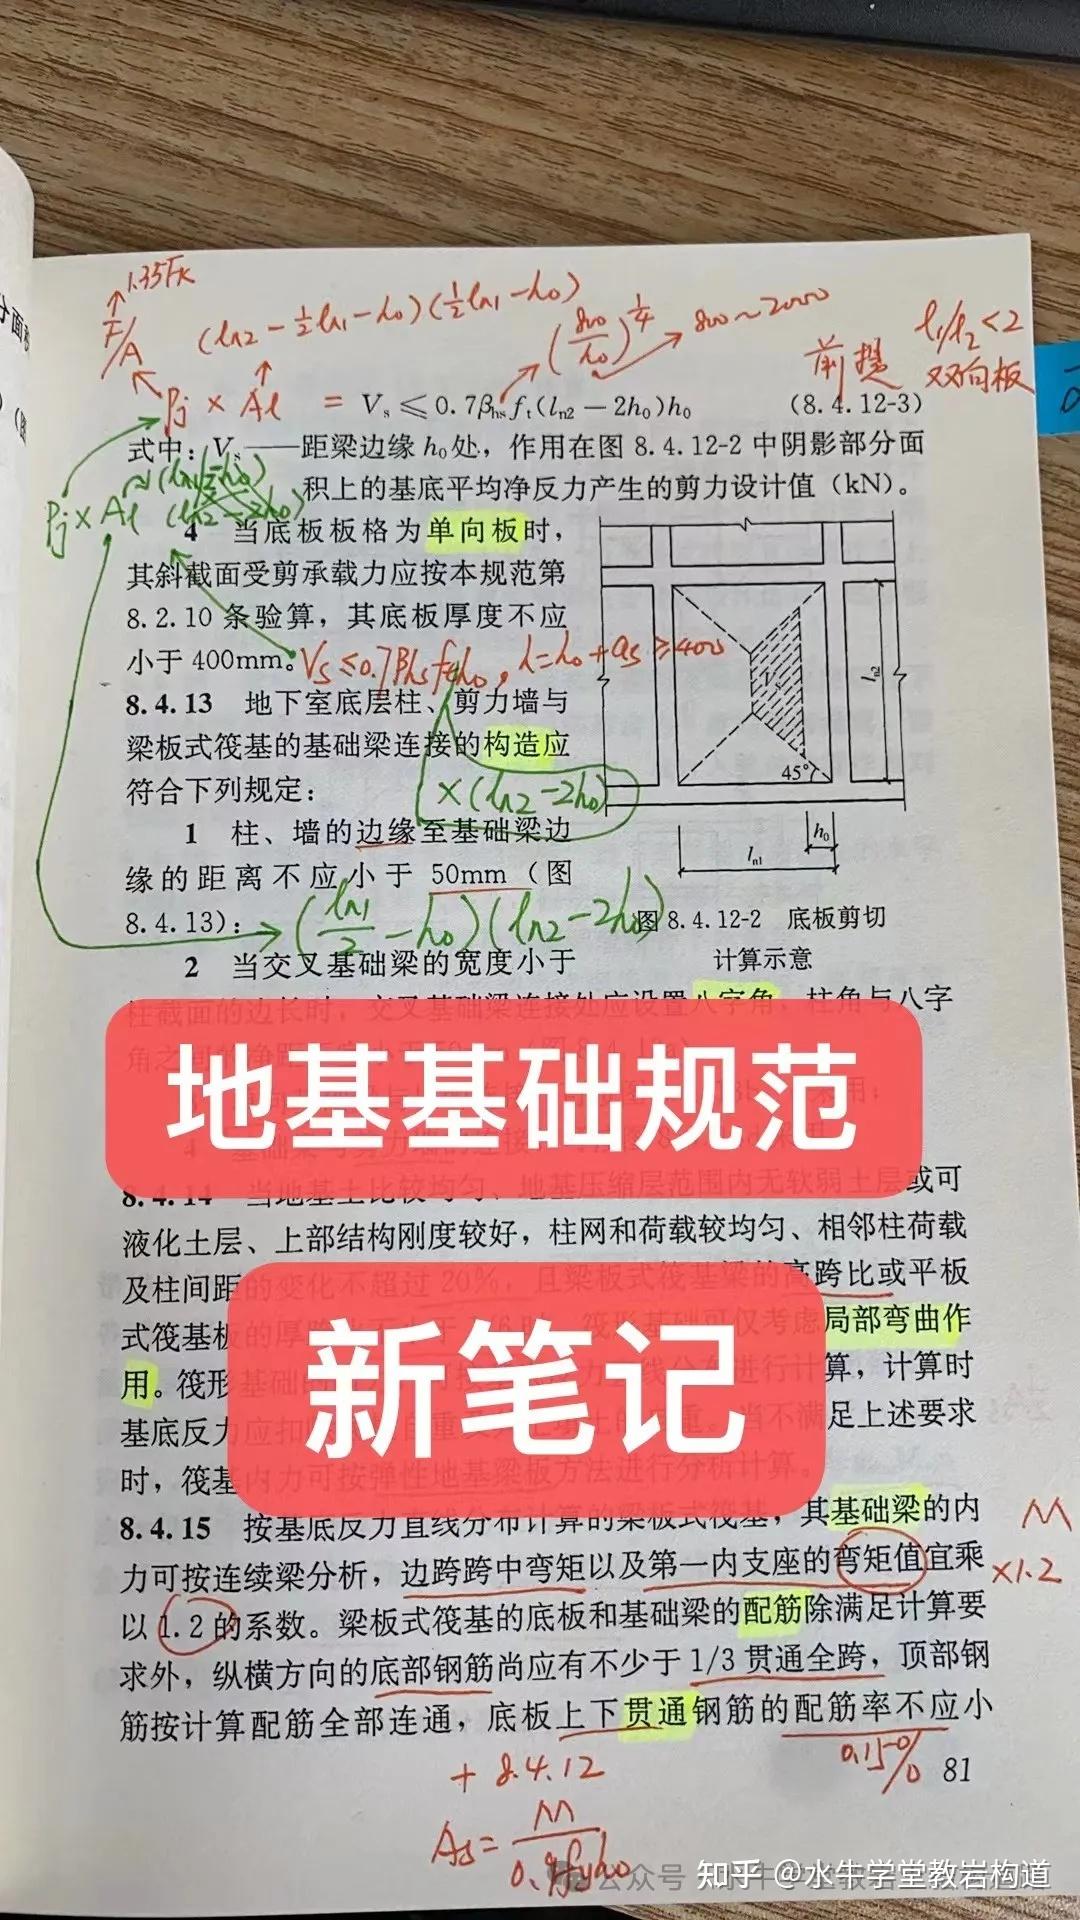 1.35Fk
F/A
(ln2 - ½ln1 - h0)(½ln1 - h0)
(800/h0)^¼
800~2000
前提
l1/l2<2
双向板
Pj × Al = Vs≤0.7βhs ft(ln2－2h0)h0 (8.4.12-3)
式中：Vs——距梁边缘 h0处，作用在图 8.4.12-2 中阴影部分面
积上的基底平均净反力产生的剪力设计值（kN）。
Pj × Al
4 当底板板格为单向板时，
其斜截面受剪承载力应按本规范第
8.2.10 条验算，其底板厚度不应
小于 400mm。
Vs≤0.7βhs ft h0, h=h0+as≥400
8.4.13 地下室底层柱、剪力墙与
梁板式筏基的基础梁连接的构造应
符合下列规定：
×(ln2-2h0)
1 柱、墙的边缘至基础梁边
缘的距离不应小于 50mm（图
8.4.13）；
(ln1/2 - h0)(ln2-2h0)
2 当交叉基础梁的宽度小于
ln2
45°
h0
ln1
图 8.4.12-2 底板剪切
计算示意
柱截面的边长时，交叉基础梁连接处应设置八字角，柱角与八字
地基基础规范
8.4.14 当地基土比较均匀、地基压缩层范围内无软弱土层或可
液化土层、上部结构刚度较好，柱网和荷载较均匀、相邻柱荷载
及柱间距的变化不超过 20%，且梁板式筏基梁的高跨比或平板
式筏基板的厚跨比 筏形基础可仅考虑局部弯曲作
用。筏形基础的 进行计算，计算时
基底反力应扣 当不满足上述要求
时，筏基内力可按弹性地基梁板方法进行分析计算。
新笔记
8.4.15 按基底反力直线分布计算的梁板式筏基，其基础梁的内
力可按连续梁分析，边跨跨中弯矩以及第一内支座的弯矩值宜乘
以 1.2 的系数。梁板式筏基的底板和基础梁的配筋除满足计算要
求外，纵横方向的底部钢筋尚应有不少于 1/3 贯通全跨，顶部钢
筋按计算配筋全部连通，底板上下贯通钢筋的配筋率不应小
M
×1.2
0.15%
81
+ 8.4.12
As = M/0.9fyh0
知乎 @水牛学堂教岩构道